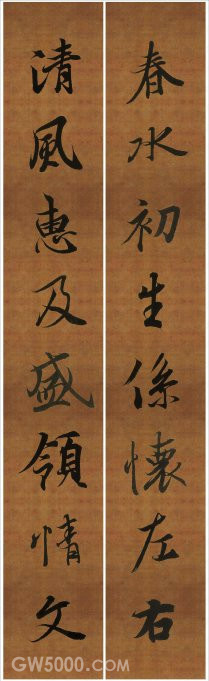 春水初生係懷左右
清風惠及盛領情文
GW5000.com